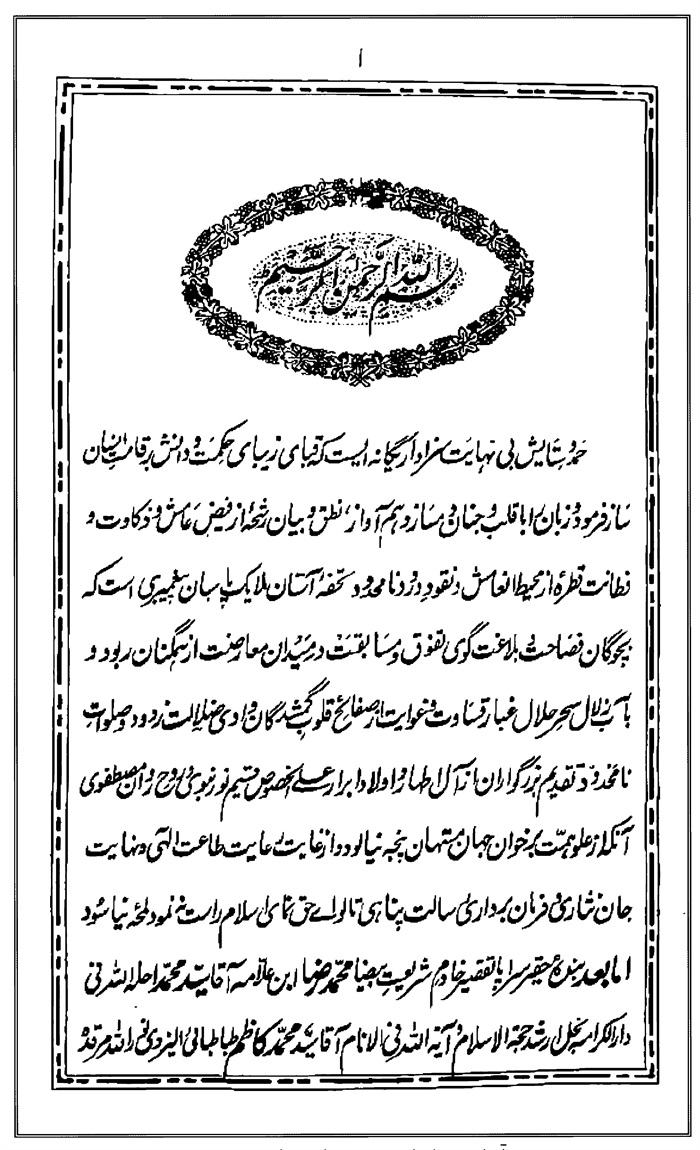 ١
بسم الله الرحمن الرحیم
حمد و ستایش بی نهایت سزاوار یگانه ایست که قبای زیبای حکمت و دانش بر قامت انسان
ساز فرمود و زبان را با قلب و جنان دمساز و هم آواز، نطق و بیان رشحهٔ از فیض عامش و ذکاوت و
فطانت قطرهٔ از محیط انعامش و نقود درود نامحدود تحفهٔ آستان ملایک پاسبان پیغمبری است که
بچوگان فصاحت و بلاغت گوی تفوق و مسابقت در میدان معارضت از همگنان ربود و
بآب زلال سحر حلال غبار قساوت و غوایت از صفایح قلوب گمشدگان وادی ضلالت زدود و صلوات
نامحدود تقدیم بزرگواران از آل اطهار و اولاد ابرار علی الخصوص قسیم نور نبوی و روح روان مصطفوی
آنکه از علو همت بر خوان جهان منتهان پنجه نیالود و از غایت رعایت طاعت الهی و نهایت
جان نثاری و فرمان برداری رسالت پناهی تا لوای حق نمای اسلام راست ننمود لمحهٔ نیاسود
اما بعد بندهٔ حقیر سراپا تقصیر خادم شریعت بیضا محمد رضا ابن علامه آقا سید محمد احله الله فی
دار الکرامه نجل ارشد حجة الاسلام و آیة الله فی الانام آقا سید محمد کاظم طباطبائی الیزدی نور الله مرقده